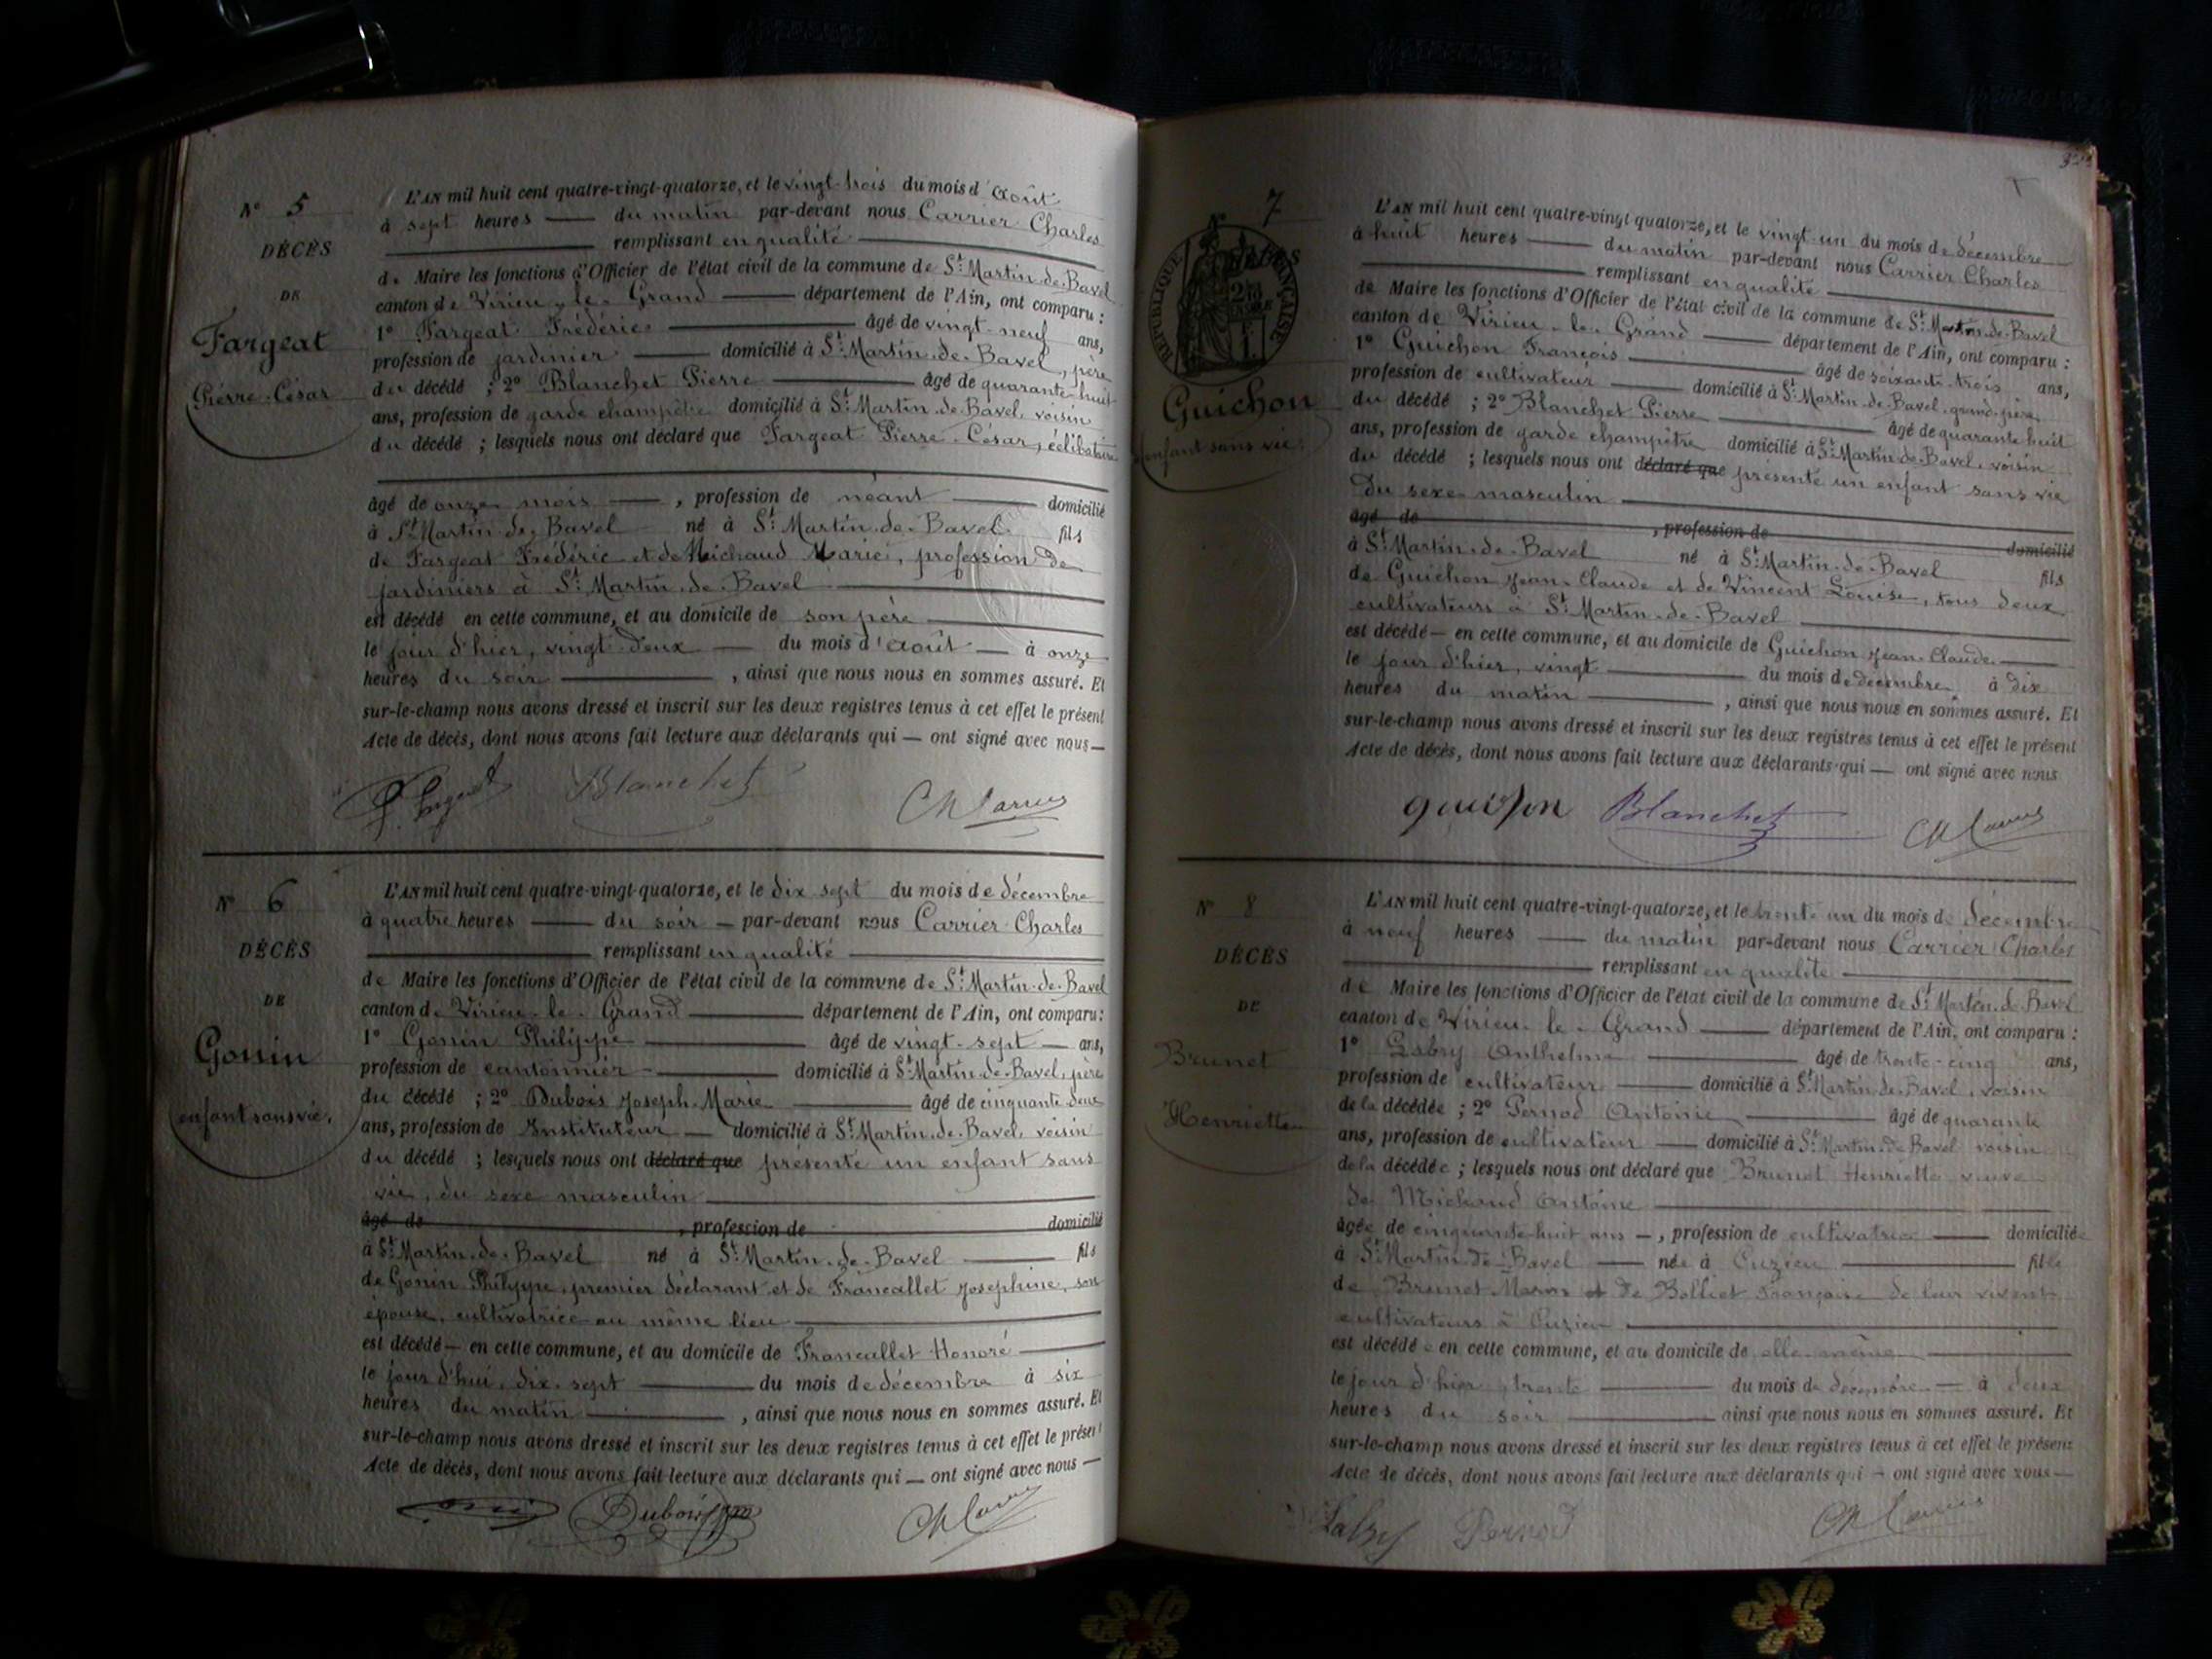 N° 5
DÉCÈS
DE
Fargeat
Pierre-César
L'AN mil huit cent quatre-vingt-quatorze, et le vingt-trois du mois d'août
à sept heures — du matin par-devant nous Carrier Charles
remplissant en qualité
de Maire les fonctions d'Officier de l'état civil de la commune de St Martin-de-Bavel
canton de Virieu-le-Grand — département de l'Ain, ont comparu :
1° Fargeat Frédéric — âgé de vingt-neuf ans,
profession de jardinier — domicilié à St Martin-de-Bavel, père
du décédé ; 2° Blanchet Pierre — âgé de quarante-huit
ans, profession de garde champêtre domicilié à St Martin-de-Bavel, voisin
du décédé ; lesquels nous ont déclaré que Fargeat Pierre-César, célibataire
âgé de onze mois —, profession de néant — domicilié
à St Martin-de-Bavel né à St Martin-de-Bavel fils
de Fargeat Frédéric et de Michaud Marie, profession de
jardiniers à St Martin-de-Bavel
est décédé en cette commune, et au domicile de son père
le jour d'hier, vingt-deux — du mois d'août — à onze
heures du soir —, ainsi que nous nous en sommes assuré. Et
sur-le-champ nous avons dressé et inscrit sur les deux registres tenus à cet effet le présent
Acte de décès, dont nous avons fait lecture aux déclarants qui — ont signé avec nous —
F. Fargeat Blanchet Ch Carrier
N° 6
DÉCÈS
DE
Gonin
enfant sans vie,
L'AN mil huit cent quatre-vingt-quatorze, et le dix sept du mois de décembre
à quatre heures — du soir — par-devant nous Carrier Charles
remplissant en qualité
de Maire les fonctions d'Officier de l'état civil de la commune de St Martin-de-Bavel
canton de Virieu-le-Grand — département de l'Ain, ont comparu :
1° Gonin Philippe — âgé de vingt-sept — ans,
profession de cantonnier — domicilié à St Martin-de-Bavel, père
du décédé ; 2° Dubois Joseph-Marie — âgé de cinquante deux
ans, profession de Instituteur — domicilié à St Martin-de-Bavel, voisin
du décédé ; lesquels nous ont déclaré que présenté un enfant sans
vie, du sexe masculin
âgé de , profession de domicilié
à St Martin-de-Bavel né à St Martin-de-Bavel — fils
de Gonin Philippe, premier déclarant et de Francallet Joséphine, son
épouse, cultivatrice au même lieu
est décédé — en cette commune, et au domicile de Francallet Honoré
le jour d'hui, dix-sept — du mois de décembre à six
heures du matin —, ainsi que nous nous en sommes assuré. Et
sur-le-champ nous avons dressé et inscrit sur les deux registres tenus à cet effet le présent
Acte de décès, dont nous avons fait lecture aux déclarants qui — ont signé avec nous —
Dubois Ch Carrier
N° 7
RÉPUBLIQUE FRANÇAISE
Guichon
enfant sans vie,
L'AN mil huit cent quatre-vingt quatorze, et le vingt-un du mois de décembre
à huit heures — du matin par-devant nous Carrier Charles
remplissant en qualité
de Maire les fonctions d'Officier de l'état civil de la commune de St Martin-de-Bavel
canton de Virieu-le-Grand — département de l'Ain, ont comparu :
1° Guichon François — âgé de soixante-trois ans,
profession de cultivateur — domicilié à St Martin-de-Bavel, grand-père
du décédé ; 2° Blanchet Pierre — âgé de quarante huit
ans, profession de garde champêtre domicilié à St Martin-de-Bavel, voisin
du décédé ; lesquels nous ont déclaré que présenté un enfant sans vie
du sexe masculin
âgé de , profession de domicilié
à St Martin-de-Bavel né à St Martin-de-Bavel fils
de Guichon Jean-Claude et de Vincent Louise, tous deux
cultivateurs à St Martin-de-Bavel
est décédé — en cette commune, et au domicile de Guichon Jean-Claude
le jour d'hier, vingt — du mois de décembre à dix
heures du matin —, ainsi que nous nous en sommes assuré. Et
sur-le-champ nous avons dressé et inscrit sur les deux registres tenus à cet effet le présent
Acte de décès, dont nous avons fait lecture aux déclarants qui — ont signé avec nous
guichon Blanchet Ch Carrier
N° 8
DÉCÈS
DE
Brunet
Henriette
L'AN mil huit cent quatre-vingt-quatorze, et le trente un du mois de décembre
à neuf heures — du matin par-devant nous Carrier Charles
remplissant en qualité
de Maire les fonctions d'Officier de l'état civil de la commune de St Martin-de-Bavel
canton de Virieu-le-Grand — département de l'Ain, ont comparu :
1° Labry Anthelme — âgé de trente-cinq ans,
profession de cultivateur — domicilié à St Martin-de-Bavel, voisin
de la décédée ; 2° Pernod Antoine — âgé de quarante
ans, profession de cultivateur — domicilié à St Martin-de-Bavel voisin
de la décédée ; lesquels nous ont déclaré que Brunet Henriette veuve
de Michaud Antoine
âgée de cinquante-huit ans —, profession de cultivatrice — domiciliée
à St Martin-de-Bavel — née à Cuzieu — fille
de Brunet Marin et de Bolliet Françoise de leur vivant
cultivateurs à Cuzieu
est décédée en cette commune, et au domicile de elle-même
le jour d'hier, trente — du mois de décembre — à deux
heures du soir — ainsi que nous nous en sommes assuré. Et
sur-le-champ nous avons dressé et inscrit sur les deux registres tenus à cet effet le présent
Acte de décès, dont nous avons fait lecture aux déclarants qui — ont signé avec nous —
Labry Pernod Ch Carrier